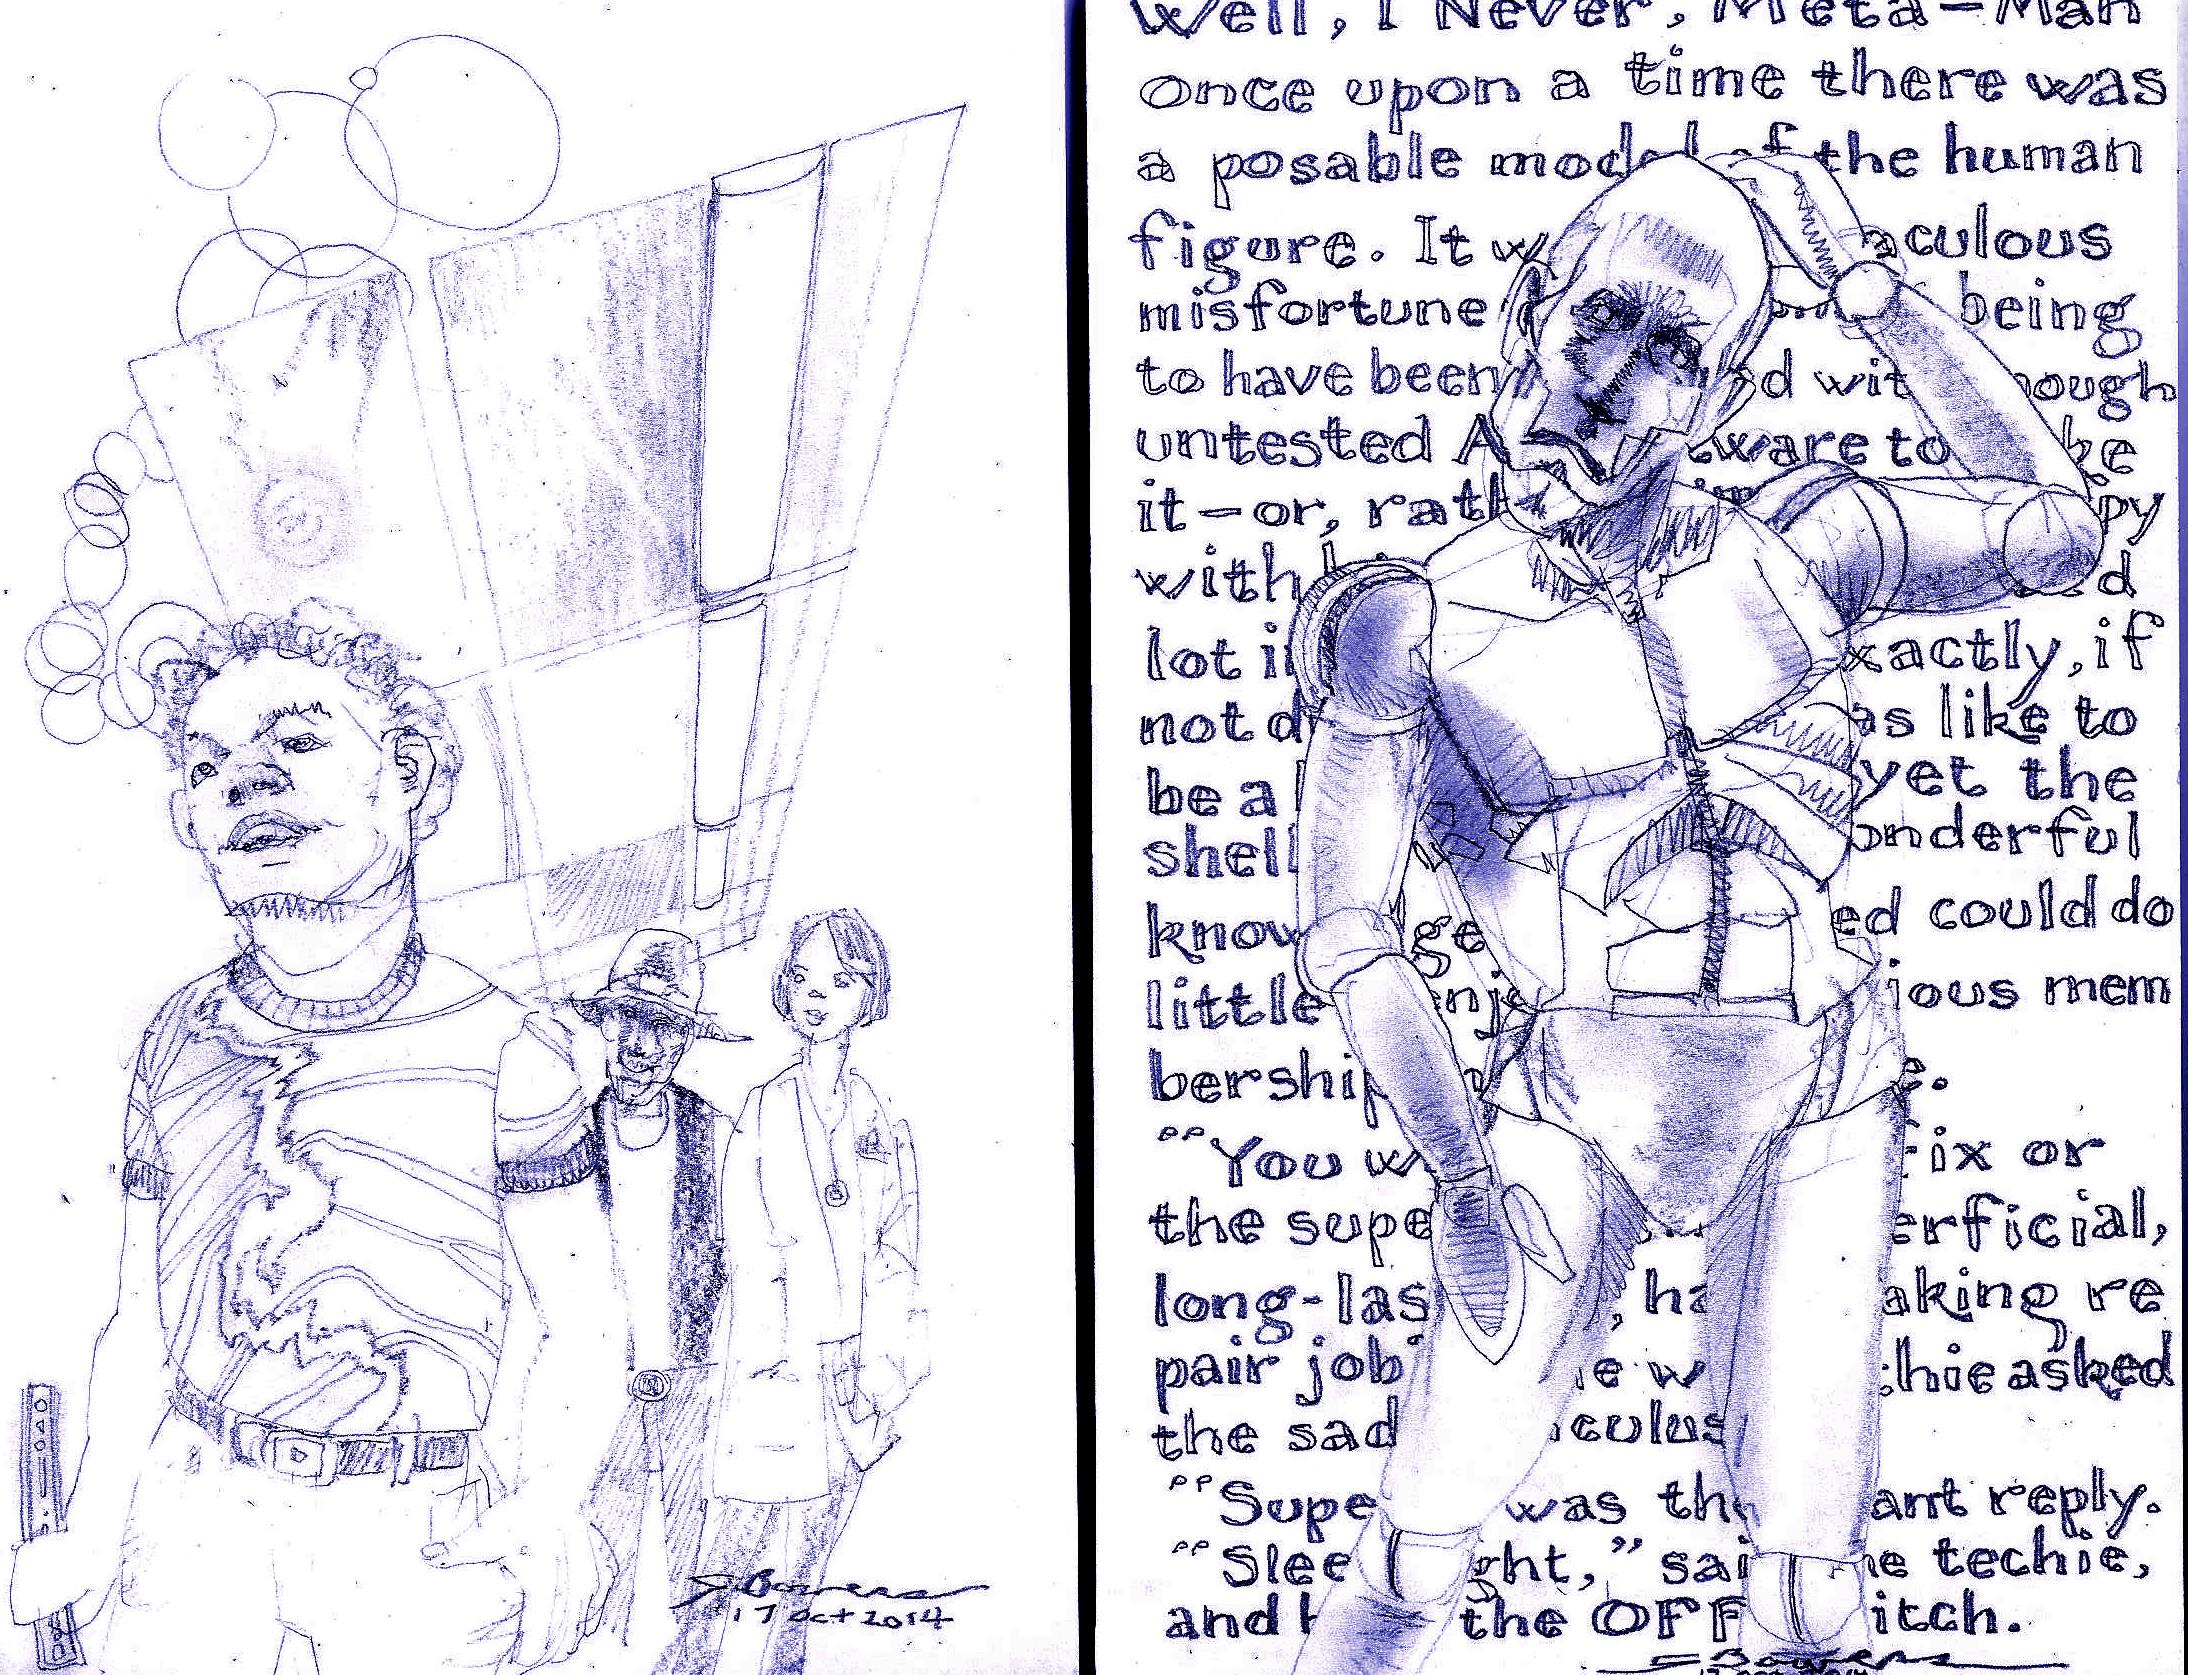 S. Bowers
17 Oct 2014
Well, I Never, Meta-Man
Once upon a time there was
a posable model of the human
figure. It w aculous
misfortune being
to have been d wit ough
untested A tware to ke
it—or, rath py
with d
lot i xactly, if
not d as like to
be a yet the
shell onderful
know ge ed could do
little enj ious mem
bership e.
“You w fix or
the supe erficial,
long-las , ha aking re
pair job e w chie asked
the sad culus
“Supe was th ant reply.
“Slee ght,” sai he techie,
and h the OFF itch.
S Bowers